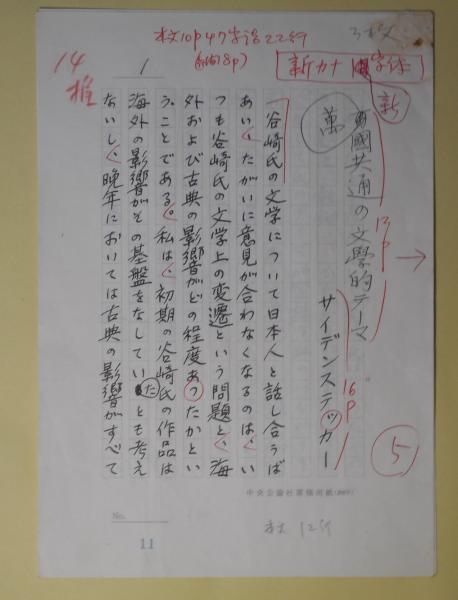 本文10P47字詰22行
3枚
14
推
1
新カナ
字体
新
萬
萬國共通の文學的テーマ
12P
サイデンステッカー
16P
5
谷崎氏の文学について日本人と話し合うば
あい、たがいに意見が合わなくなるのは、い
つも谷崎氏の文学上の変遷という問題と、海
外および古典の影響がどの程度あったかとい
うことである。私は、初期の谷崎氏の作品は
海外の影響がその基盤をなしていたとも考え
ないし、晩年においては古典の影響がすべて
中央公論社原稿用紙
No.
11
本文 12行